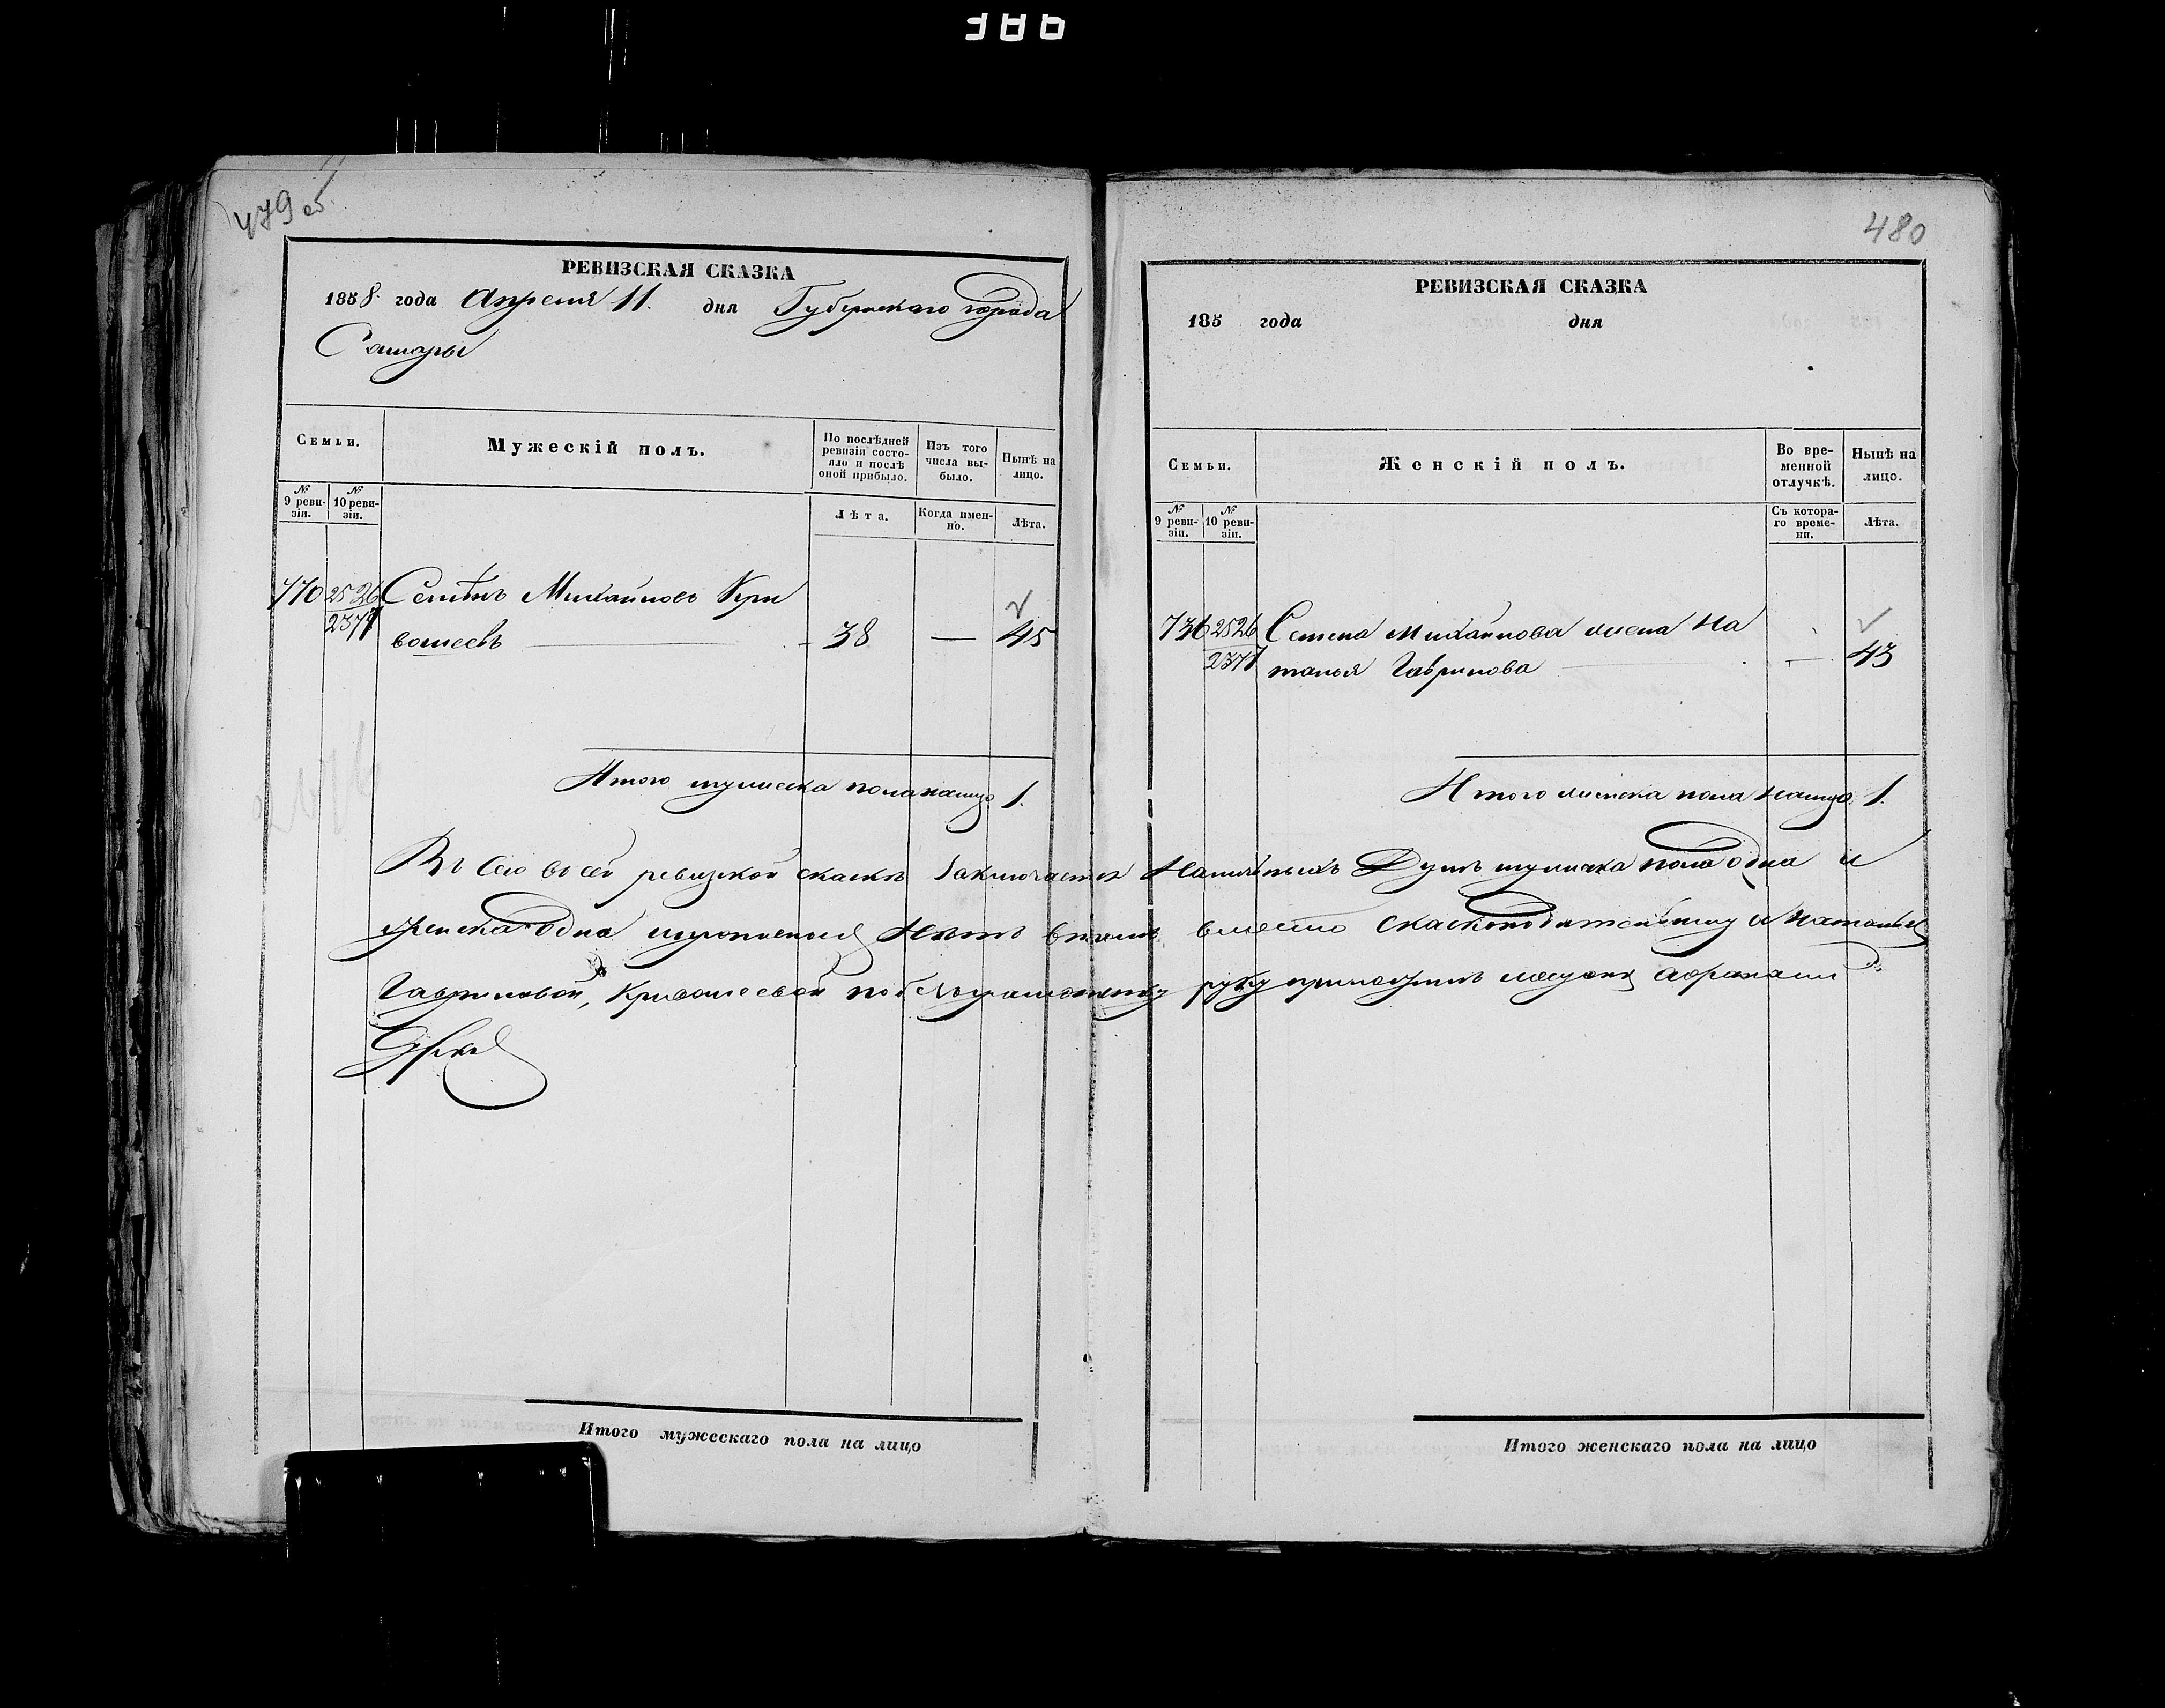 386
479 об
РЕВИЗСКАЯ СКАЗКА
1858 года Апреля 11. дня Губернскаго города
Самары
Семьи.
Мужескій полъ.
По послѣдней ревизіи состояло и послѣ оной прибыло.
Изъ того числа выбыло.
Нынѣ на лицо.
№ 9 ревизіи.
№ 10 ревизіи.
Лѣта.
Когда именно.
Лѣта.
2526 Семёнъ Михайловъ Кри
2377 вошеевъ 38 — 45
Итого мужеска пола налицо 1.
480
РЕВИЗСКАЯ СКАЗКА
185 года дня
Семьи.
Женскій полъ.
Во временной отлучкѣ.
Нынѣ на лицо.
№ 9 ревизіи.
№ 10 ревизіи.
Съ котораго времени.
Лѣта.
736 2526 Семена Михайлова жена На
2377 талья Гаврилова — 43
Итого женска пола налицо 1.
ревизкой скаскѣ заключается Наличныхъ Душъ мужеска пола одна и
женска одна нѣтъ вместо
Гавриловой, Кривошеевой руку приложилъ
Итого мужескаго пола на лицо
Итого женскаго пола на лицо